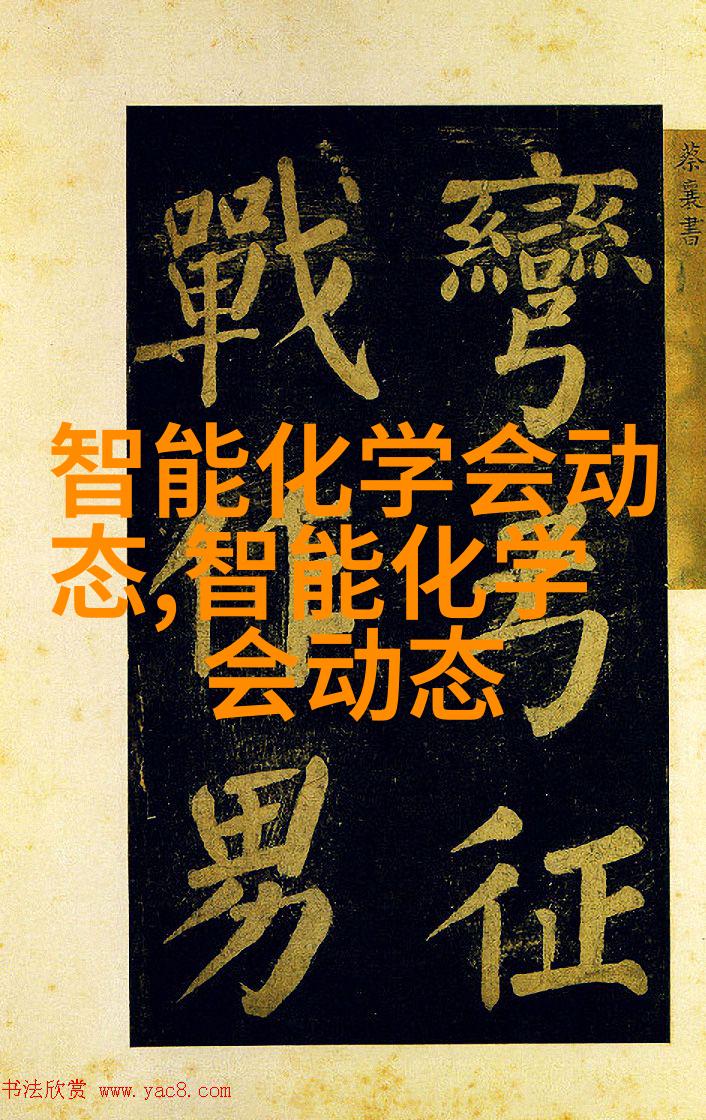 蔡襄書
彎弓征
戰作男
智能化学会动
态,智能化学
会动态
书法欣赏 www.yac8.com